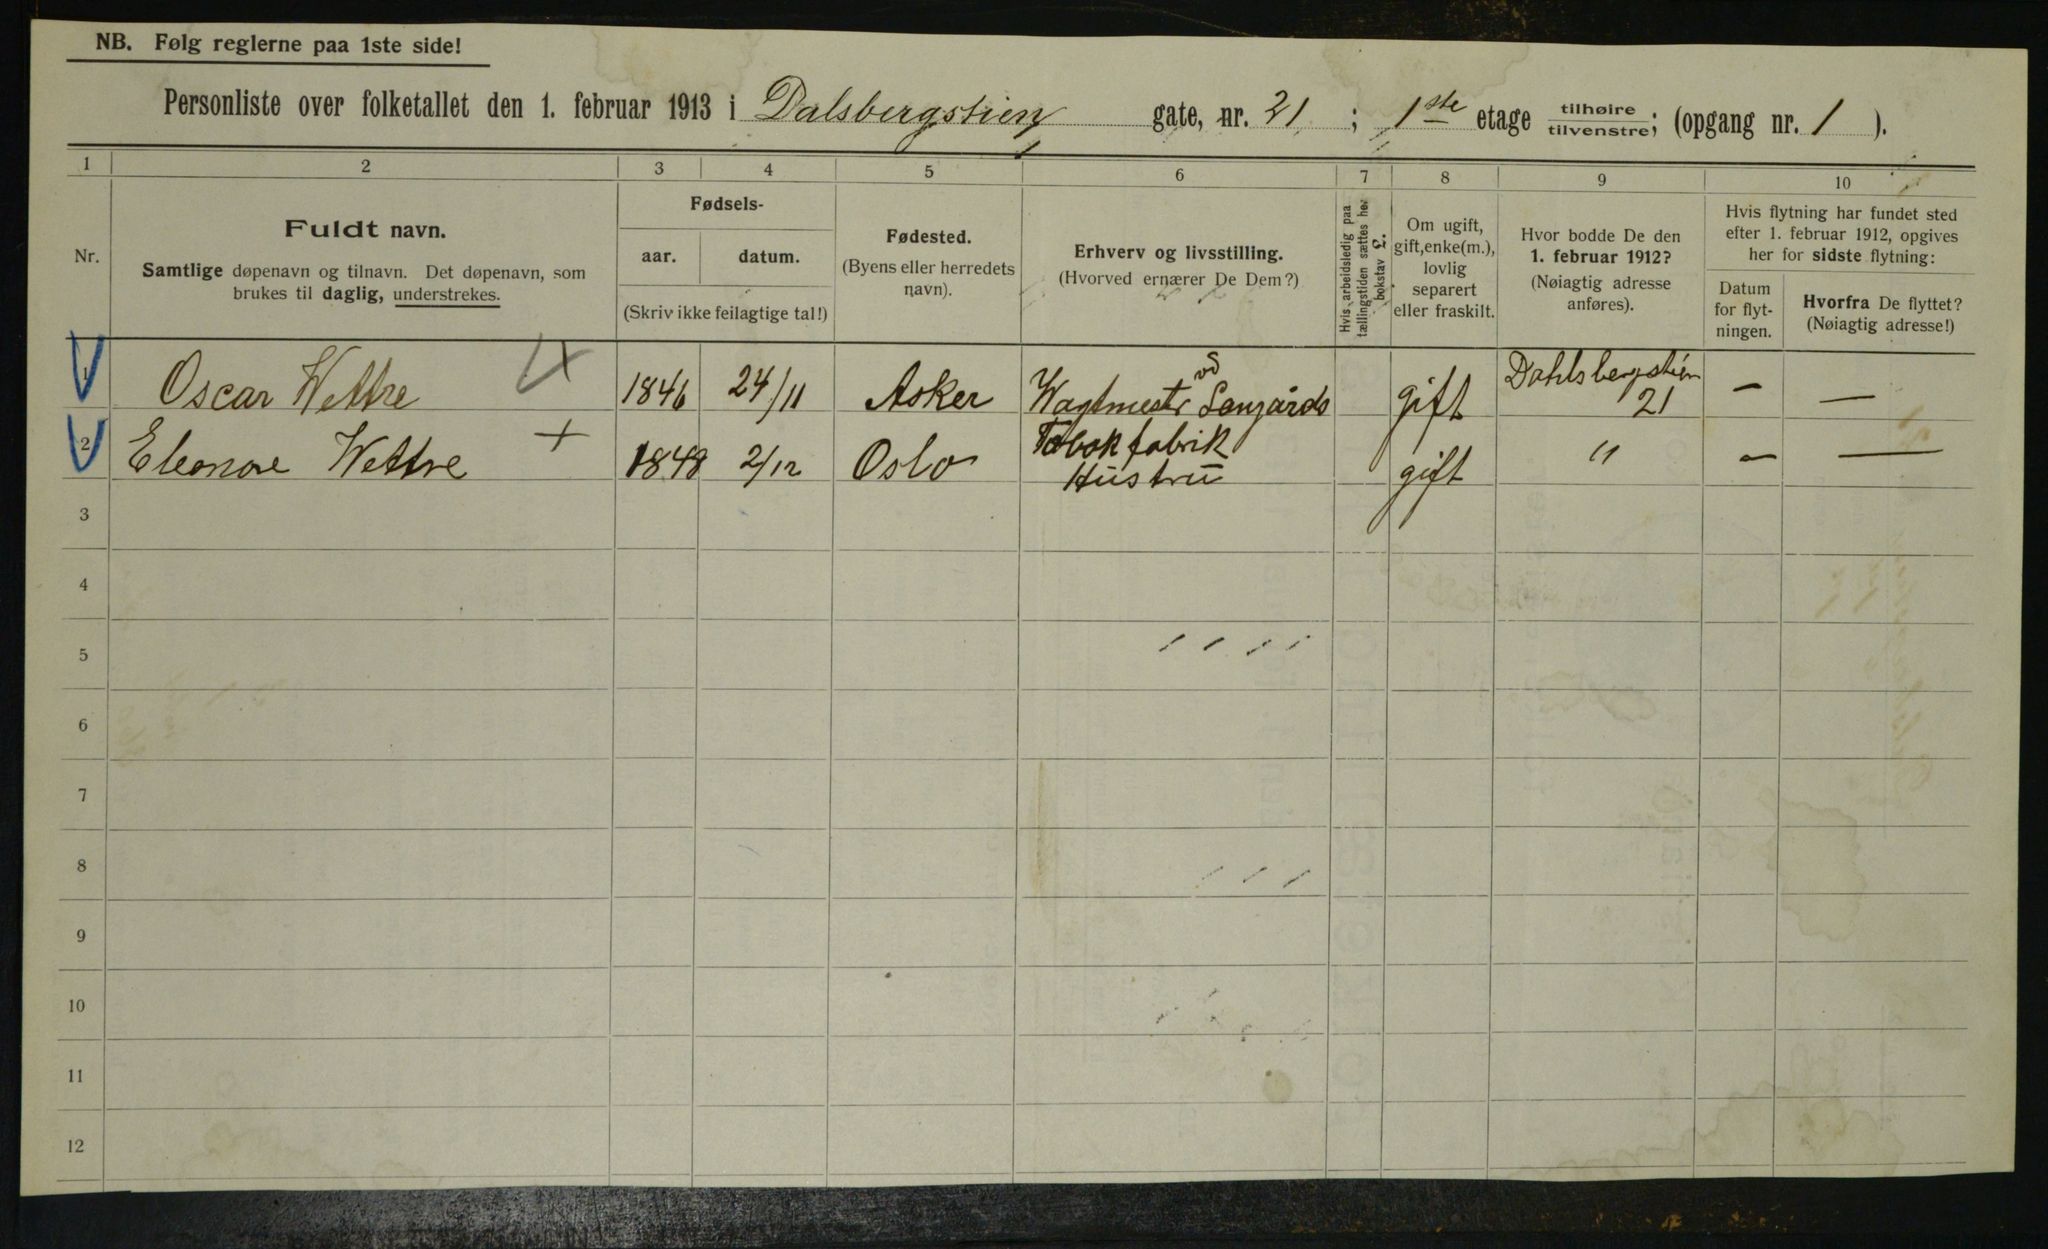 NB. Følg reglerne paa 1ste side!
Personliste over folketallet den 1. februar 1913 i Dalsbergstien gate, nr. 21 ; 1ste etage tilhøire/tilvenstre; (opgang nr. 1 ).
1 2 3 4 5 6 7 8 9 10
Nr.
Fuldt navn.
Samtlige døpenavn og tilnavn. Det døpenavn, som
brukes til daglig, understrekes.
Fødsels-
aar. datum.
(Skriv ikke feilagtige tal!)
Fødested.
(Byens eller herredets
navn).
Erhverv og livsstilling.
(Hvorved ernærer De Dem?)
Hvis arbeidsledig paa
tællingstiden sættes her
bokstav L.
Om ugift,
gift, enke(m.),
lovlig
separert
eller fraskilt.
Hvor bodde De den
1. februar 1912?
(Nøiagtig adresse
anføres).
Hvis flytning har fundet sted
efter 1. februar 1912, opgives
her for sidste flytning:
Datum
for flyt-
ningen.
Hvorfra De flyttet?
(Nøiagtig adresse!)
1 Oscar Wettre 1846 24/11 Asker Wagtmestr vd Langårds gift Dahlsbergstien 21 - —
Tobak fabrik
2 Eleonore Wettre 1848 2/12 Oslo Hustru gift " - —
3
4
5
6
7
8
9
10
11
12